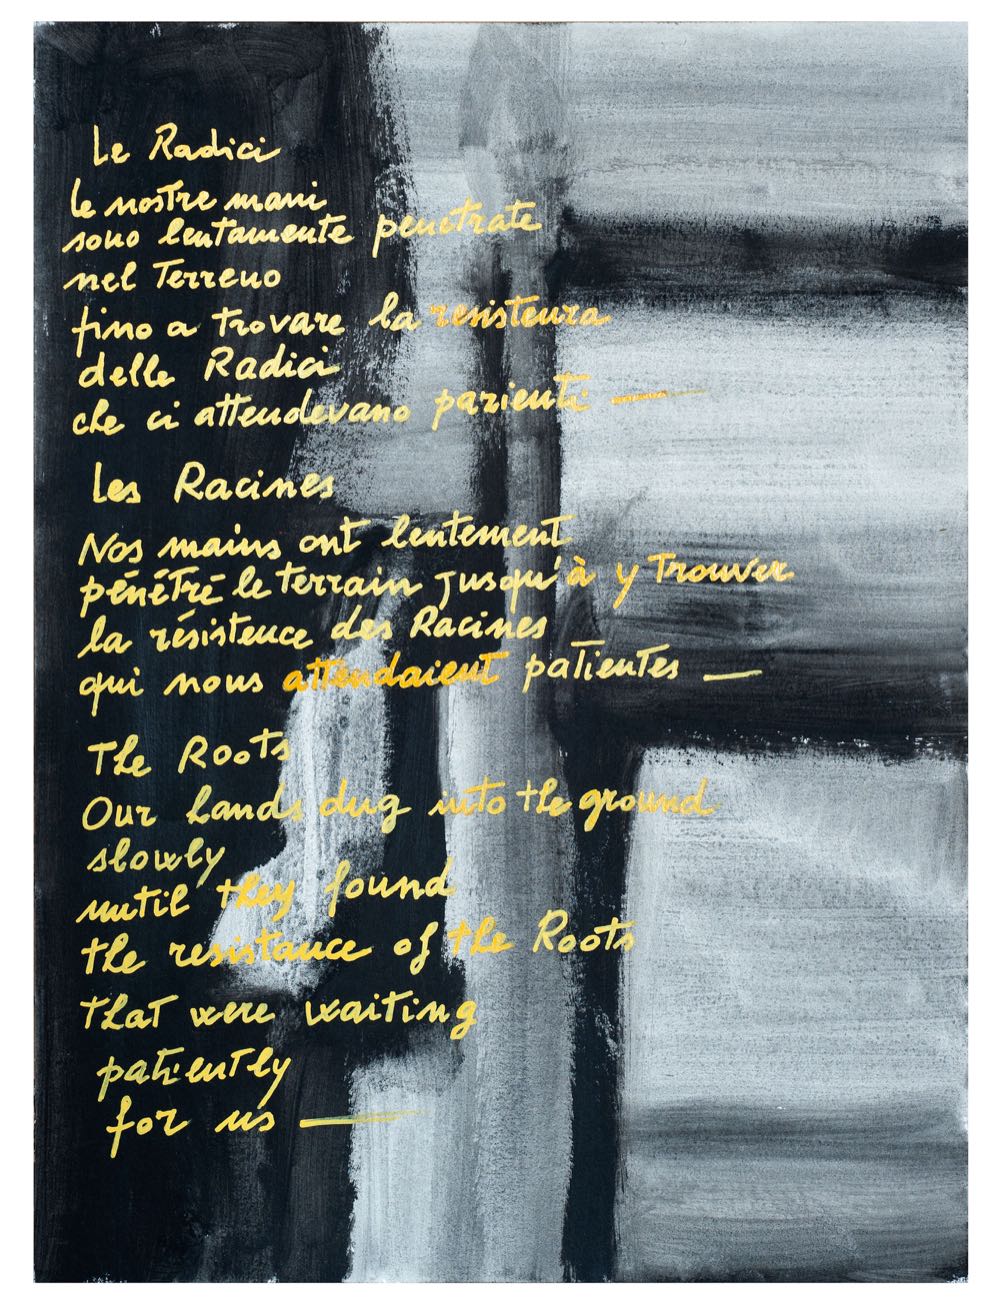 Le Radici
le nostre mani
sono lentamente penetrate
nel Terreno
fino a trovare la resistenza
delle Radici
che ci attendevano pazienti —
Les Racines
Nos mains ont lentement
pénétré le terrain jusqu'à y Trouver
la résistence des Racines
qui nous attendaient patientes —
The Roots
Our hands dug into the ground
slowly
until they found
the resistance of the Roots
that were waiting
patiently
for us —